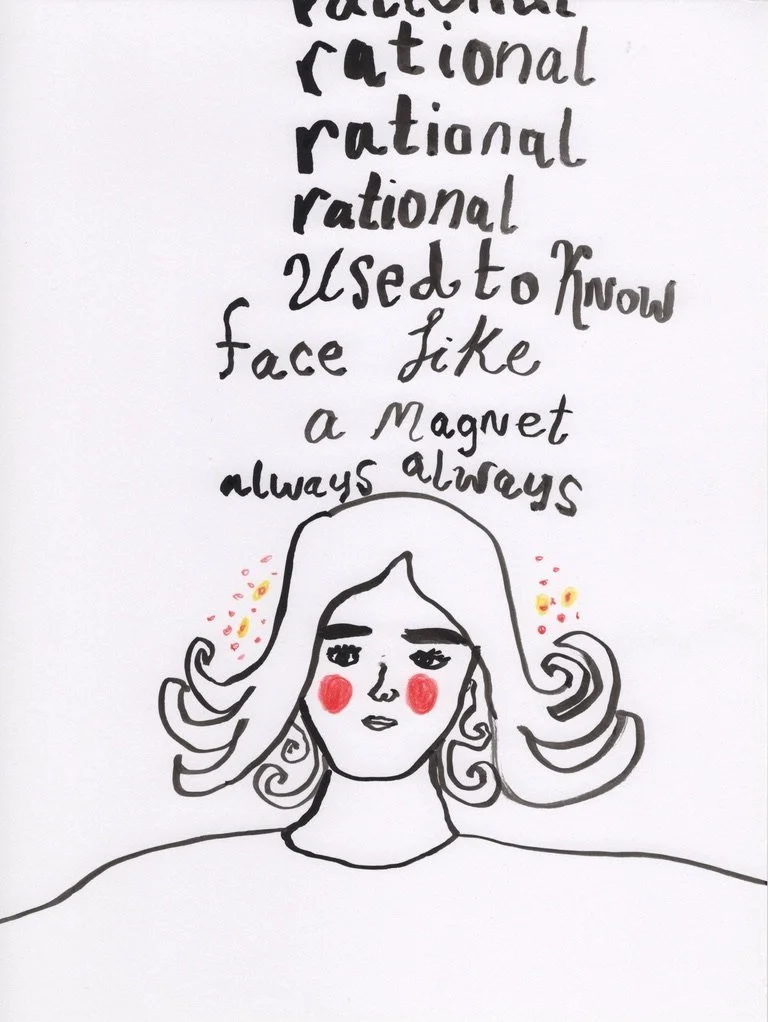 rational
rational
rational
rational
Used to Know
face like
a Magnet
always always